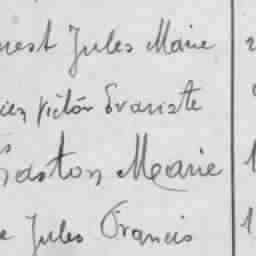 nest Jules Marie
ien Victor Evariste
Gaston Marie
e Jules Francis